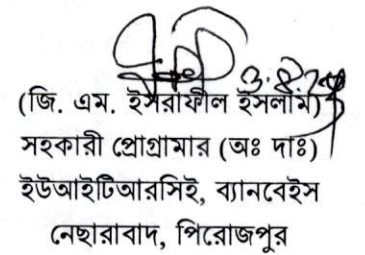 (জি. এম. ইসরাফীল ইসলাম)
সহকারী প্রোগ্রামার (অঃ দাঃ)
ইউআইটিআরসিই, ব্যানবেইস
নেছারাবাদ, পিরোজপুর